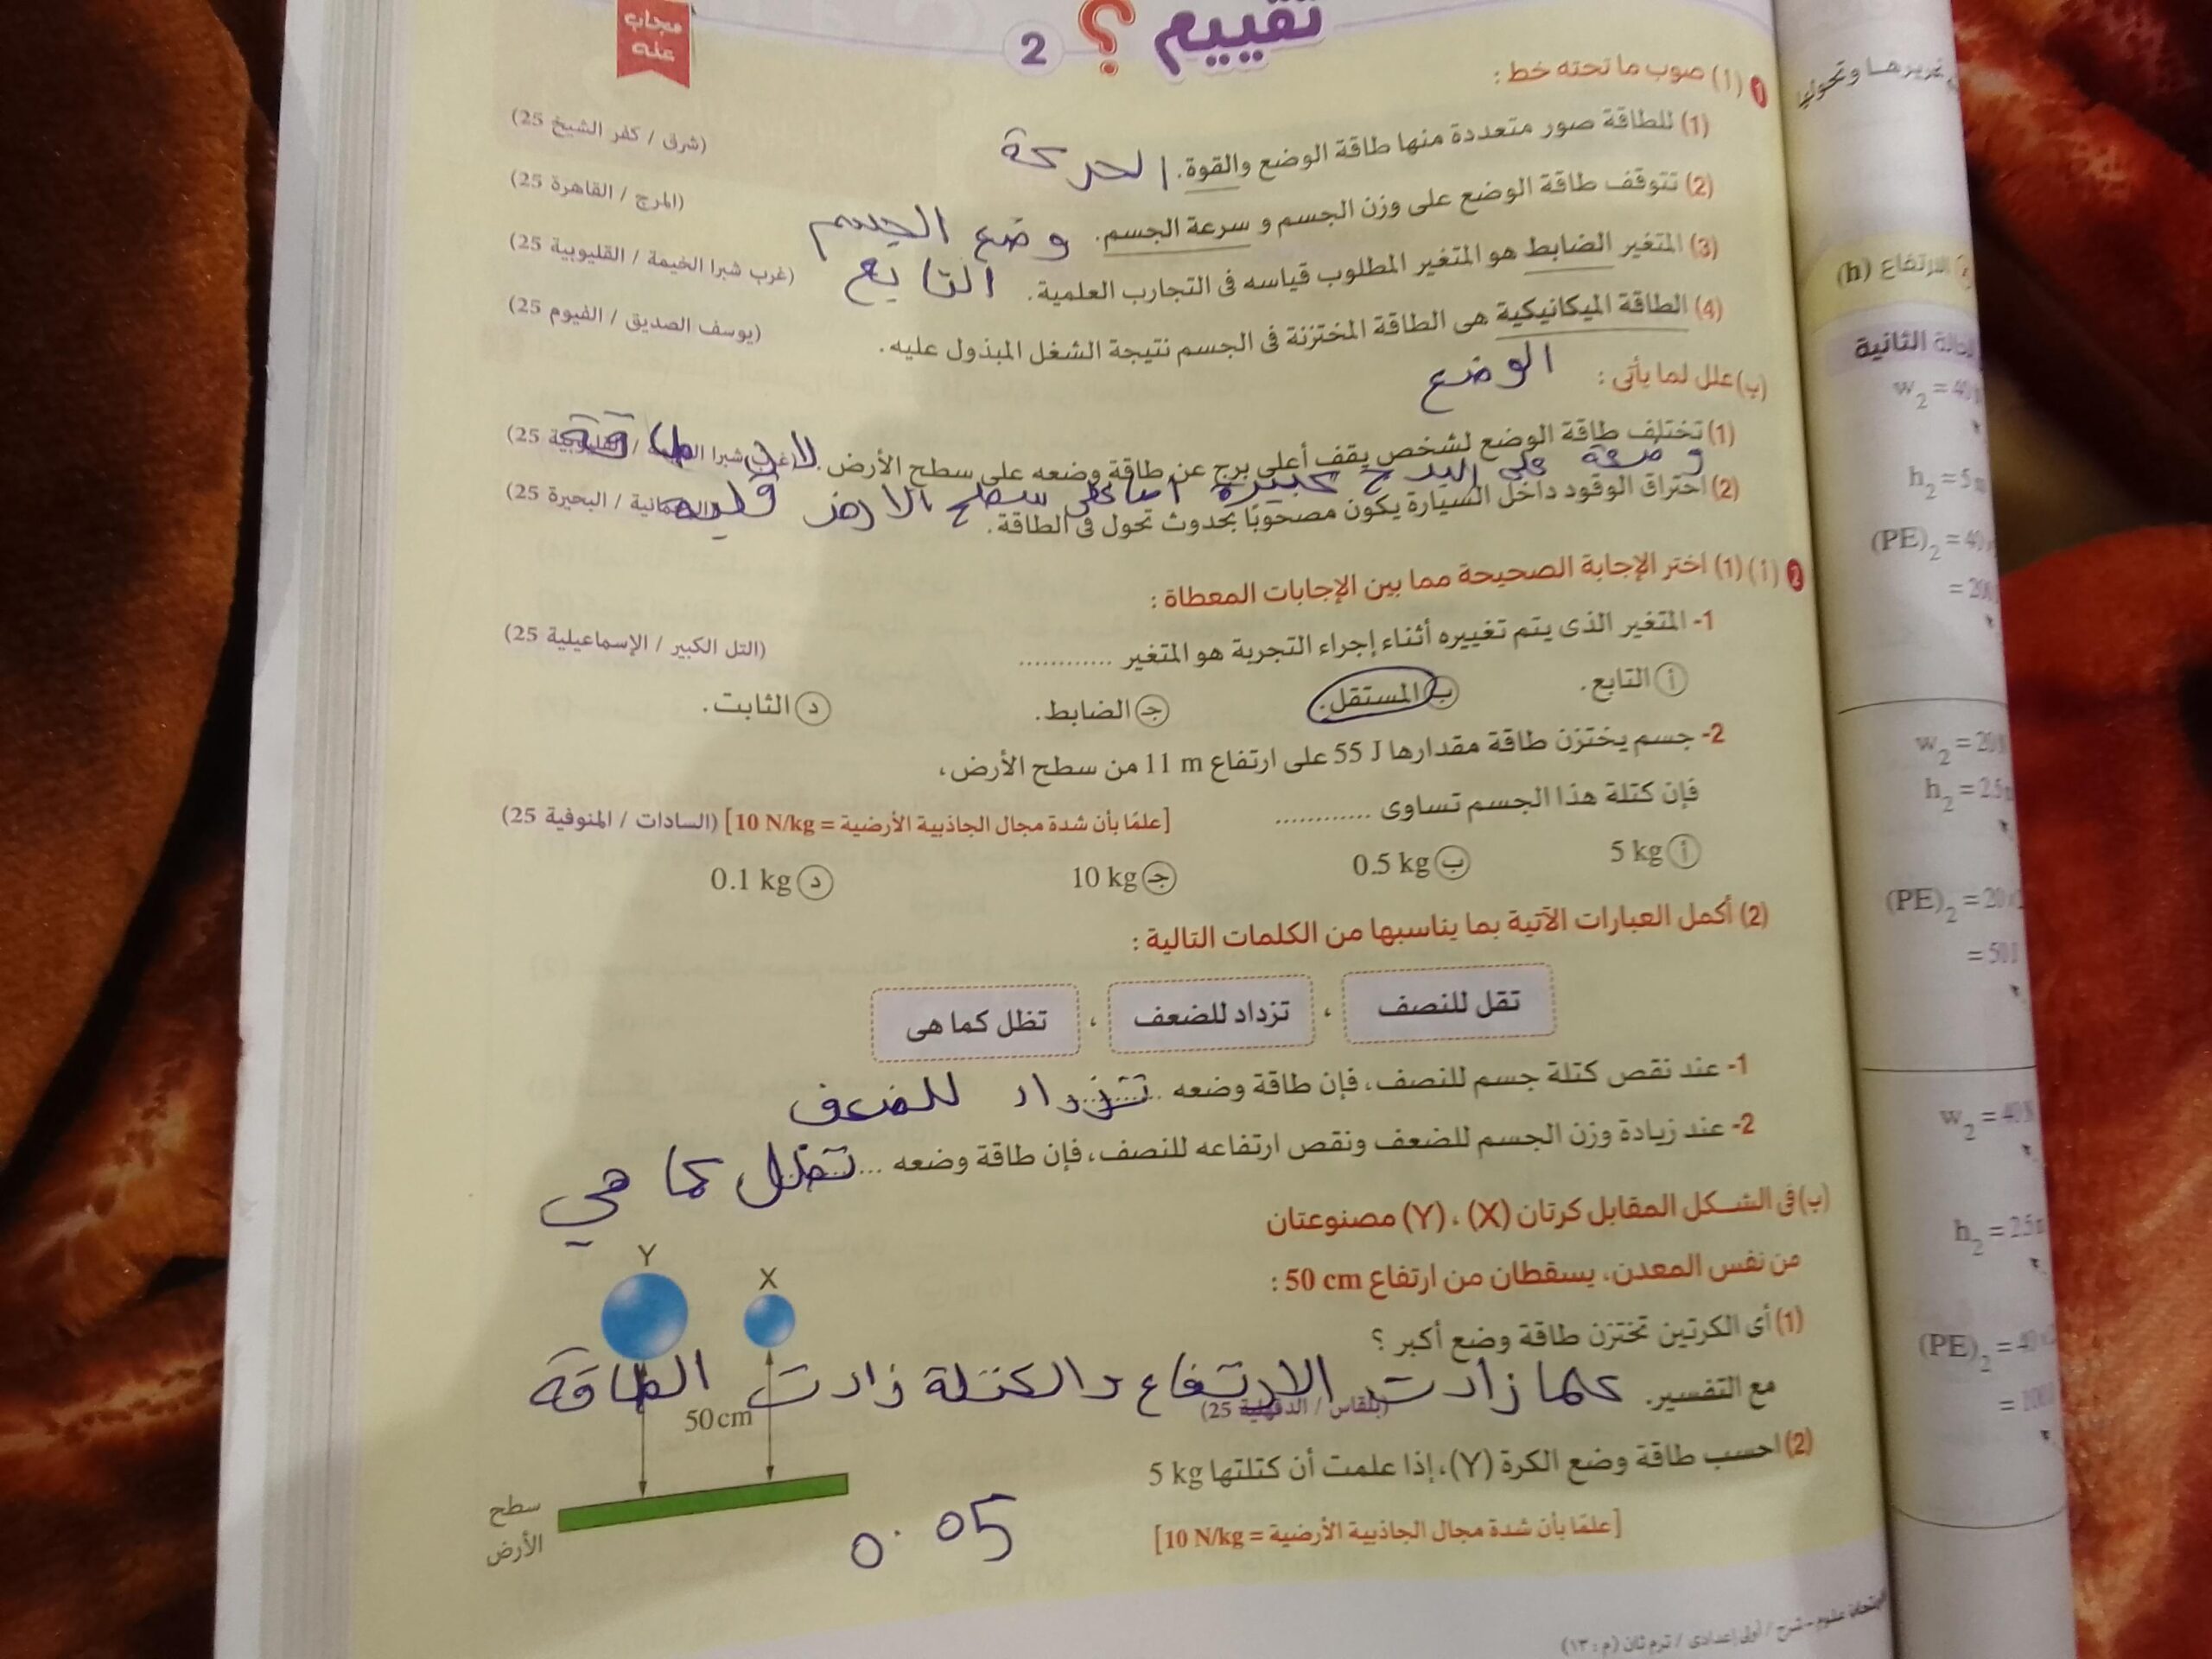 تقييم ؟ 2
مجاب عنه
1 (أ) صوب ما تحته خط :
(1) للطاقة صور متعددة منها طاقة الوضع والقوة. الحركة (شرق / كفر الشيخ 25)
(2) تتوقف طاقة الوضع على وزن الجسم و سرعة الجسم. وضع الجسم (المرج / القاهرة 25)
(3) المتغير الضابط هو المتغير المطلوب قياسه فى التجارب العلمية. التابع (غرب شبرا الخيمة / القليوبية 25)
(4) الطاقة الميكانيكية هى الطاقة المختزنة فى الجسم نتيجة الشغل المبذول عليه. (يوسف الصديق / الفيوم 25)
الوضع
(ب) علل لما يأتى :
(1) تختلف طاقة الوضع لشخص يقف أعلى برج عن طاقة وضعه على سطح الأرض. لان طاقة (غرب شبرا الخيمة / القليوبية 25)
وضعه على البرج كبيرة اما على سطح الارض قليله
(2) احتراق الوقود داخل السيارة يكون مصحوبًا بحدوث تحول فى الطاقة. (البحيرة 25)
2 (أ) (1) اختر الإجابة الصحيحة مما بين الإجابات المعطاة :
1- المتغير الذى يتم تغييره أثناء إجراء التجربة هو المتغير ............ (التل الكبير / الإسماعيلية 25)
أ التابع. ب المستقل. ج الضابط. د الثابت.
2- جسم يختزن طاقة مقدارها 55 J على ارتفاع 11 m من سطح الأرض،
فإن كتلة هذا الجسم تساوى ............ [علمًا بأن شدة مجال الجاذبية الأرضية = 10 N/kg] (السادات / المنوفية 25)
أ 5 kg ب 0.5 kg ج 10 kg د 0.1 kg
(2) أكمل العبارات الآتية بما يناسبها من الكلمات التالية :
تقل للنصف ، تزداد للضعف ، تظل كما هى
1- عند نقص كتلة جسم للنصف، فإن طاقة وضعه تزداد للضعف
2- عند زيادة وزن الجسم للضعف ونقص ارتفاعه للنصف، فإن طاقة وضعه ... تظل كما هي
(ب) فى الشكل المقابل كرتان (X) ، (Y) مصنوعتان
من نفس المعدن، يسقطان من ارتفاع 50 cm :
(1) أى الكرتين تختزن طاقة وضع أكبر ؟
مع التفسير. كلما زادت الارتفاع والكتلة زادت الطاقة
(بلقاس / الدقهلية 25)
(2) احسب طاقة وضع الكرة (Y)، إذا علمت أن كتلتها 5 kg
[علمًا بأن شدة مجال الجاذبية الأرضية = 10 N/kg]
0.05
Y
X
50 cm
سطح
الأرض
علوم – شرح / أولى إعدادى / ترم ثان (م : ١٣)
وتحولها
الارتفاع (h)
الحالة الثانية
w2 = 40
h2 = 5
(PE)2 = 40
= 200
w2 = 20
h2 = 2.5
(PE)2 = 20
= 50
w2 = 40
h2 = 2.5
(PE)2 = 40
= 100